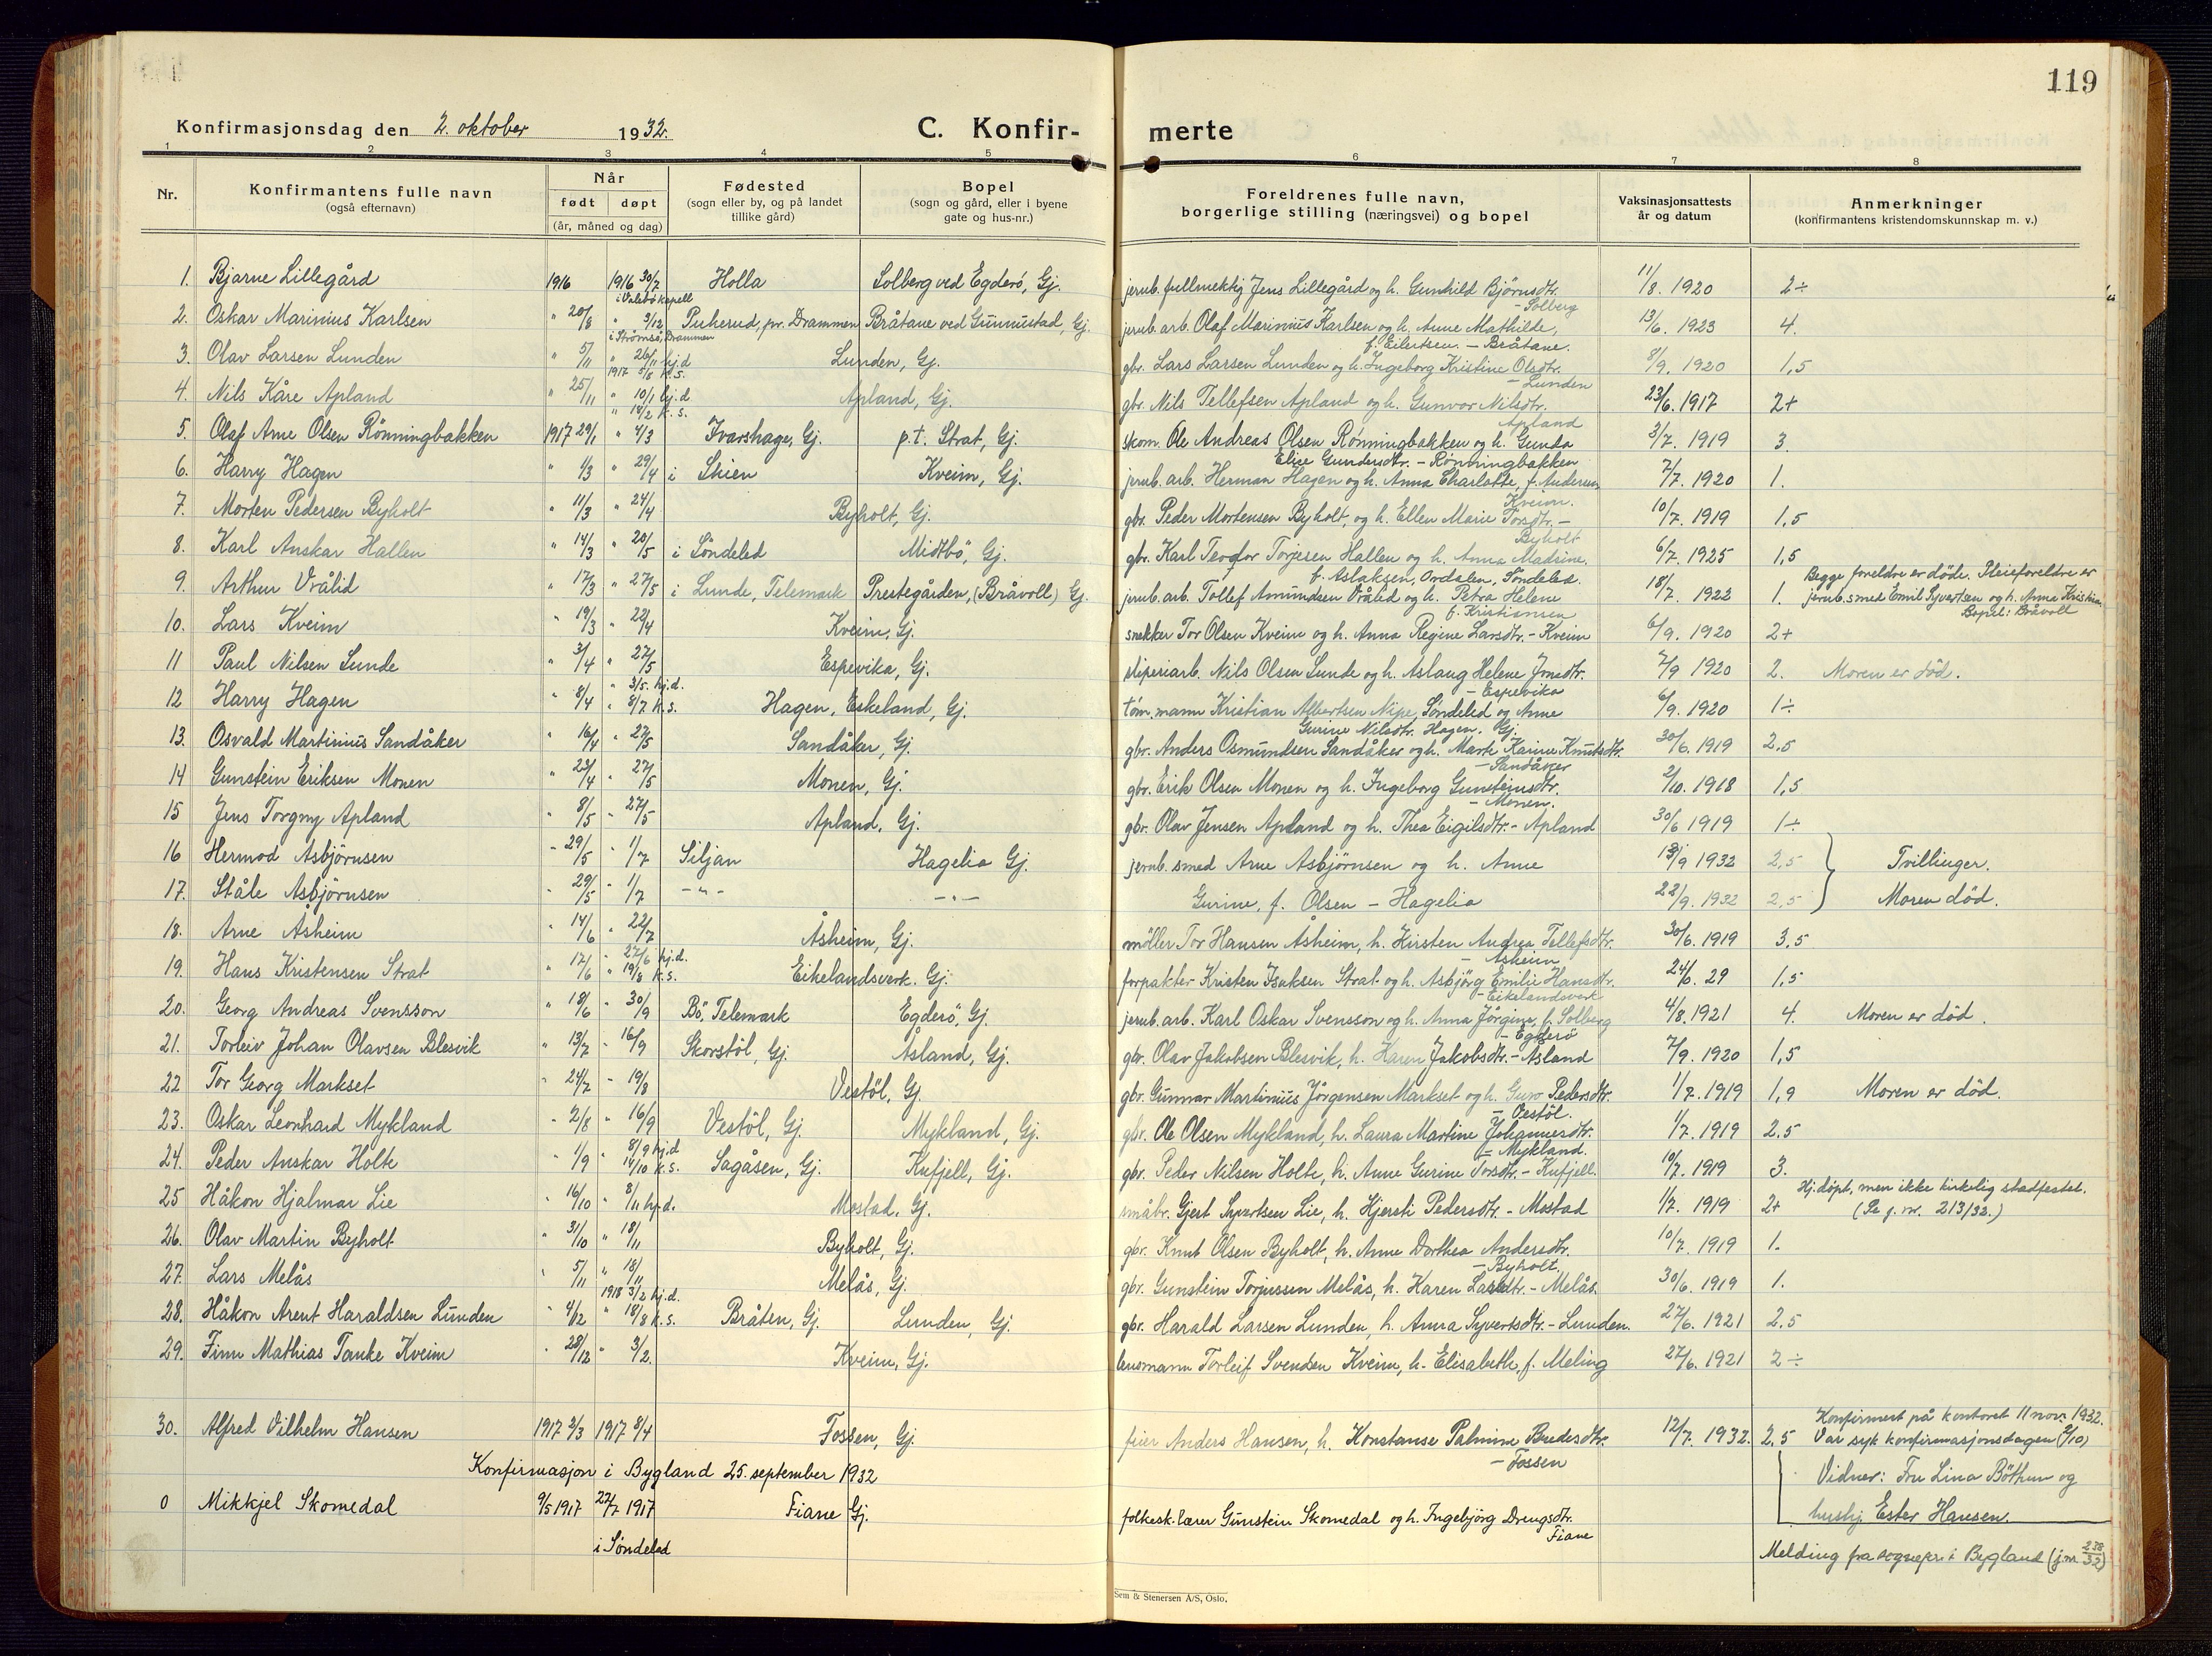 119
Konfirmasjonsdag den 2. oktober 1932.
C. Konfir- merte
1 2 3 4 5 6 7 8
Nr.
Konfirmantens fulle navn
(også efternavn)
Når
født døpt
(år, måned og dag)
Fødested
(sogn eller by, og på landet
tillike gård)
Bopel
(sogn og gård, eller i byene
gate og hus-nr.)
Foreldrenes fulle navn,
borgerlige stilling (næringsvei) og bopel
Vaksinasjonsattests
år og datum
Anmerkninger
(konfirmantens kristendomskunnskap m. v.)
1. Bjarne Lillegård 1916 1916 30/7 Holla Solberg ved Egderö, Gj. jernb. fullmektig Jens Lillegård og h. Gunhild Björnsdtr. 11/8. 1920 2÷
i Valebö kapell - Solberg
2. Oskar Marinius Karlsen " 20/8 " 3/12 Puherud, pr. Drammen Bråtane ved Gunnustad, Gj. jernb. arb. Olaf Marinius Karlsen og h. Anne Mathilde, 13/6. 1923 4.
i Strömsö, Drammen f. Eilertsen. - Bråtane.
3. Olav Larsen Lunden " 5/11 " 26/11 hj.d Lunden, Gj. gbr. Lars Larsen Lunden og h. Ingeborg Kristine Olsdtr. 8/9. 1920 1,5
1917 5/8 k.s. - Lunden
4. Nils Kåre Apland " 25/11 " 10/1 hj.d Apland, Gj. gbr. Nils Tellefsen Apland og h. Gunvor Nilsdtr. 23/6. 1917 2+
" 14/2 k.s. Apland
5. Olaf Arne Olsen Rönningbakken 1917 29/1 " 4/3 Ivarshage, Gj. p.t. Strat, Gj. skom. Ole Andreas Olsen Rönningbakken og h. Gunda 3/7. 1919 3.
Elise Gundersdtr. - Rönningbakken
6. Harry Hagen " 1/3 " 29/4 i Skien Kveim, Gj. jernb. arb. Herman Hagen og h. Anna Charlotte, f. Andersen 7/7. 1920 1.
Kveim.
7. Morten Pedersen Byholt " 11/3 " 24/4 Byholt, Gj. gbr. Peder Mortensen Byholt, og h. Ellen Marie Torsdtr. - 10/7. 1919 1,5
Byholt
8. Karl Anskar Hallen " 14/3 " 20/5 i Söndeled Midtbö, Gj. gbr. Karl Teodor Torjesen Hallen og h. Anna Madsine. 6/7. 1925 1,5
f. Aslaksen, Ordalen, Söndeled.
9. Arthur Vrålid " 17/3 " 27/5 i Lunde, Telemark Prestegården, (Bråvoll) Gj. jernb. arb. Tollef Amundsen Vrålid og h. Petra Helene 18/7. 1922 1. Begge foreldre er döde. Pleieforeldre er
f. Kristiansen jernb. smed Emil Syvertsen og h. Anna Kristine
Bopel: Bråvoll
10. Lars Kveim " 19/3 " 22/4 Kveim, Gj. snekker Tor Olsen Kveim og h. Anna Regine Larsdtr. - Kveim 6/9. 1920 2+
11 Paul Nilsen Lunde " 3/4 " 27/5 Espevika, Gj. sliperiarb. Nils Olsen Lunde og h. Aslaug Helene Jonsdtr. 7/9 1920 2. Moren er död.
- Espevika
12 Harry Hagen " 8/4 " 3/5. hj.d. Hagen, Eskeland, Gj. töm.mann Kristian Albertsen Nipe, Söndeled og Anne 6/9. 1920 1÷
" 8/7 k.s. Gurine Nilsdtr. Hagen. Gj.
13. Osvald Martinius Sandåker " 16/4 " 27/5 Sandåker, Gj. gbr. Anders Osmundsen Sandåker og h. Marte Karine Knutsdtr. 30/6. 1919 2,5
- Sandåker
14 Gunstein Eriksen Monen " 23/4 " 27/5 Monen, Gj. gbr. Erik Olsen Monen og h. Ingeborg Gunsteinsdtr. 2/10. 1918 1,5
- Monen.
15 Jens Torgny Apland " 8/5 - 27/5 Apland, Gj. gbr. Olav Jensen Apland og h. Thea Eigilsdtr. - Apland 30/6 1919 1÷
16 Hermod Asbjörnsen - 29/5 - 1/7 Siljan Hagelia Gj. jernb. smed Arne Asbjörnsen og h. Anne 19/9 1932 2,5 Tvillinger.
17. Ståle Asbjörnsen - 29/5 - 1/7 - " - - " - Gurine, f. Olsen - Hagelia 22/9. 1932 2,5 Moren död.
18. Arne Åsheim " 14/6 - 22/7 Åsheim, Gj. möller Tor Hansen Åsheim, h. Kirsten Andrea Tellefsdtr. 30/6. 1919 3,5
- Åsheim
19. Hans Kristensen Strat " 17/6 - 27/6 hj.d. Eikelandsverk. Gj. forpakter Kristen Isaksen Strat og h. Asbjörg Emilie Hansdtr. 24/6. 29 1,5
" 19/8 k.s. - Eikelandsverk
20. Georg Andreas Svensson " 18/6 - 30/9 Bö, Telemark Egderö, Gj. jernb. arb. Karl Oskar Svensson og h. Anna Jörgine, f. Solberg 4/8. 1921 4. Moren er död.
- Egderö
21. Torleiv Johan Olavsen Blesvik " 13/7 - 16/9 Skorstöl, Gj. Åsland, Gj. gbr. Olav Jakobsen Blesvik, h. Karen Jakobsdtr. - Åsland 7/9. 1920 1,5
22 Tor Georg Markset - 24/7 - 19/8 Vestöl, Gj. gbr. Gunnar Martinius Jörgensen Markset og h. Guro Pedersdtr. 1/7. 1919 1,9 Moren er död.
- Vestöl.
23. Oskar Leonhard Mykland - 2/8 - 16/9 Vestöl, Gj. Mykland, Gj. gbr. Ole Olsen Mykland, h. Laura Martine Johannesdtr. 1/7. 1919 2,5
- Mykland.
24. Peder Anskar Holte - 1/9 " 8/9 hj.d Sagåsen, Gj. Kufjell, Gj. gbr. Peder Nilsen Holte, h. Anne Gurine Torsdtr. - Kufjell. 10/7. 1919 3.
14/10 k.s.
25 Håkon Hjalmar Lie - 16/10 " 8/11 hj.d. Mostad, Gj. småbr. Gjert Syvertsen Lie, h. Kjersti Pedersdtr. - Mostad 1/7. 1919 2+ Hj.döpt, men ikke kirkelig stadfestet.
(Se j. nr. 213/32.)
26. Olav Martin Byholt " 31/10 " 18/11 Byholt, Gj. gbr. Knut Olsen Byholt, h. Anne Dorthea Andersdtr. 10/7. 1919 1.
- Byholt.
27. Lars Melås " 5/11 " 18/11 Melås, Gj. gbr. Gunstein Torjussen Melås, h. Karen Larsdtr. - Melås. 30/6. 1919 1.
1918 3/2 hj.d.
28. Håkon Arent Haraldsen Lunden - 4/12 " 18/8 k.s. Bråten, Gj. Lunden, Gj. gbr. Harald Larsen Lunden, h. Anna Syvertsdtr. - Lunden. 27/6. 1921 2,5
29. Finn Mathias Tanke Kveim - 28/12 " 3/2. Kveim, Gj. lensmann Torleif Svenden Kveim, h. Elisabeth, f. Meling 27/6. 1921 2÷
30. Alfred Vilhelm Hansen 1917 2/3 1917 8/4 Fossen, Gj. feier Anders Hansen, h. Konstanse Palmine Bredesdtr. 12/7. 1932. 2,5 Konfirmert på kontoret 11 nov. 1932.
- Fossen Var syk konfirmasjonsdagen (2/10)
Konfirmasjon i Bygland 25. september 1932 Vidner: Fru Lina Böthun og
hushj. Ester Hansen.
0 Mikkjel Skomedal 9/5 1917 22/7 1917 Fiane Gj. folkesk. lærer Gunstein Skomedal og h. Ingebjörg Drengsdtr.
i Söndeled Fiane
Melding fra sognepr. i Bygland (j.nr. 238/32)
Sem & Stenersen A/S, Oslo.